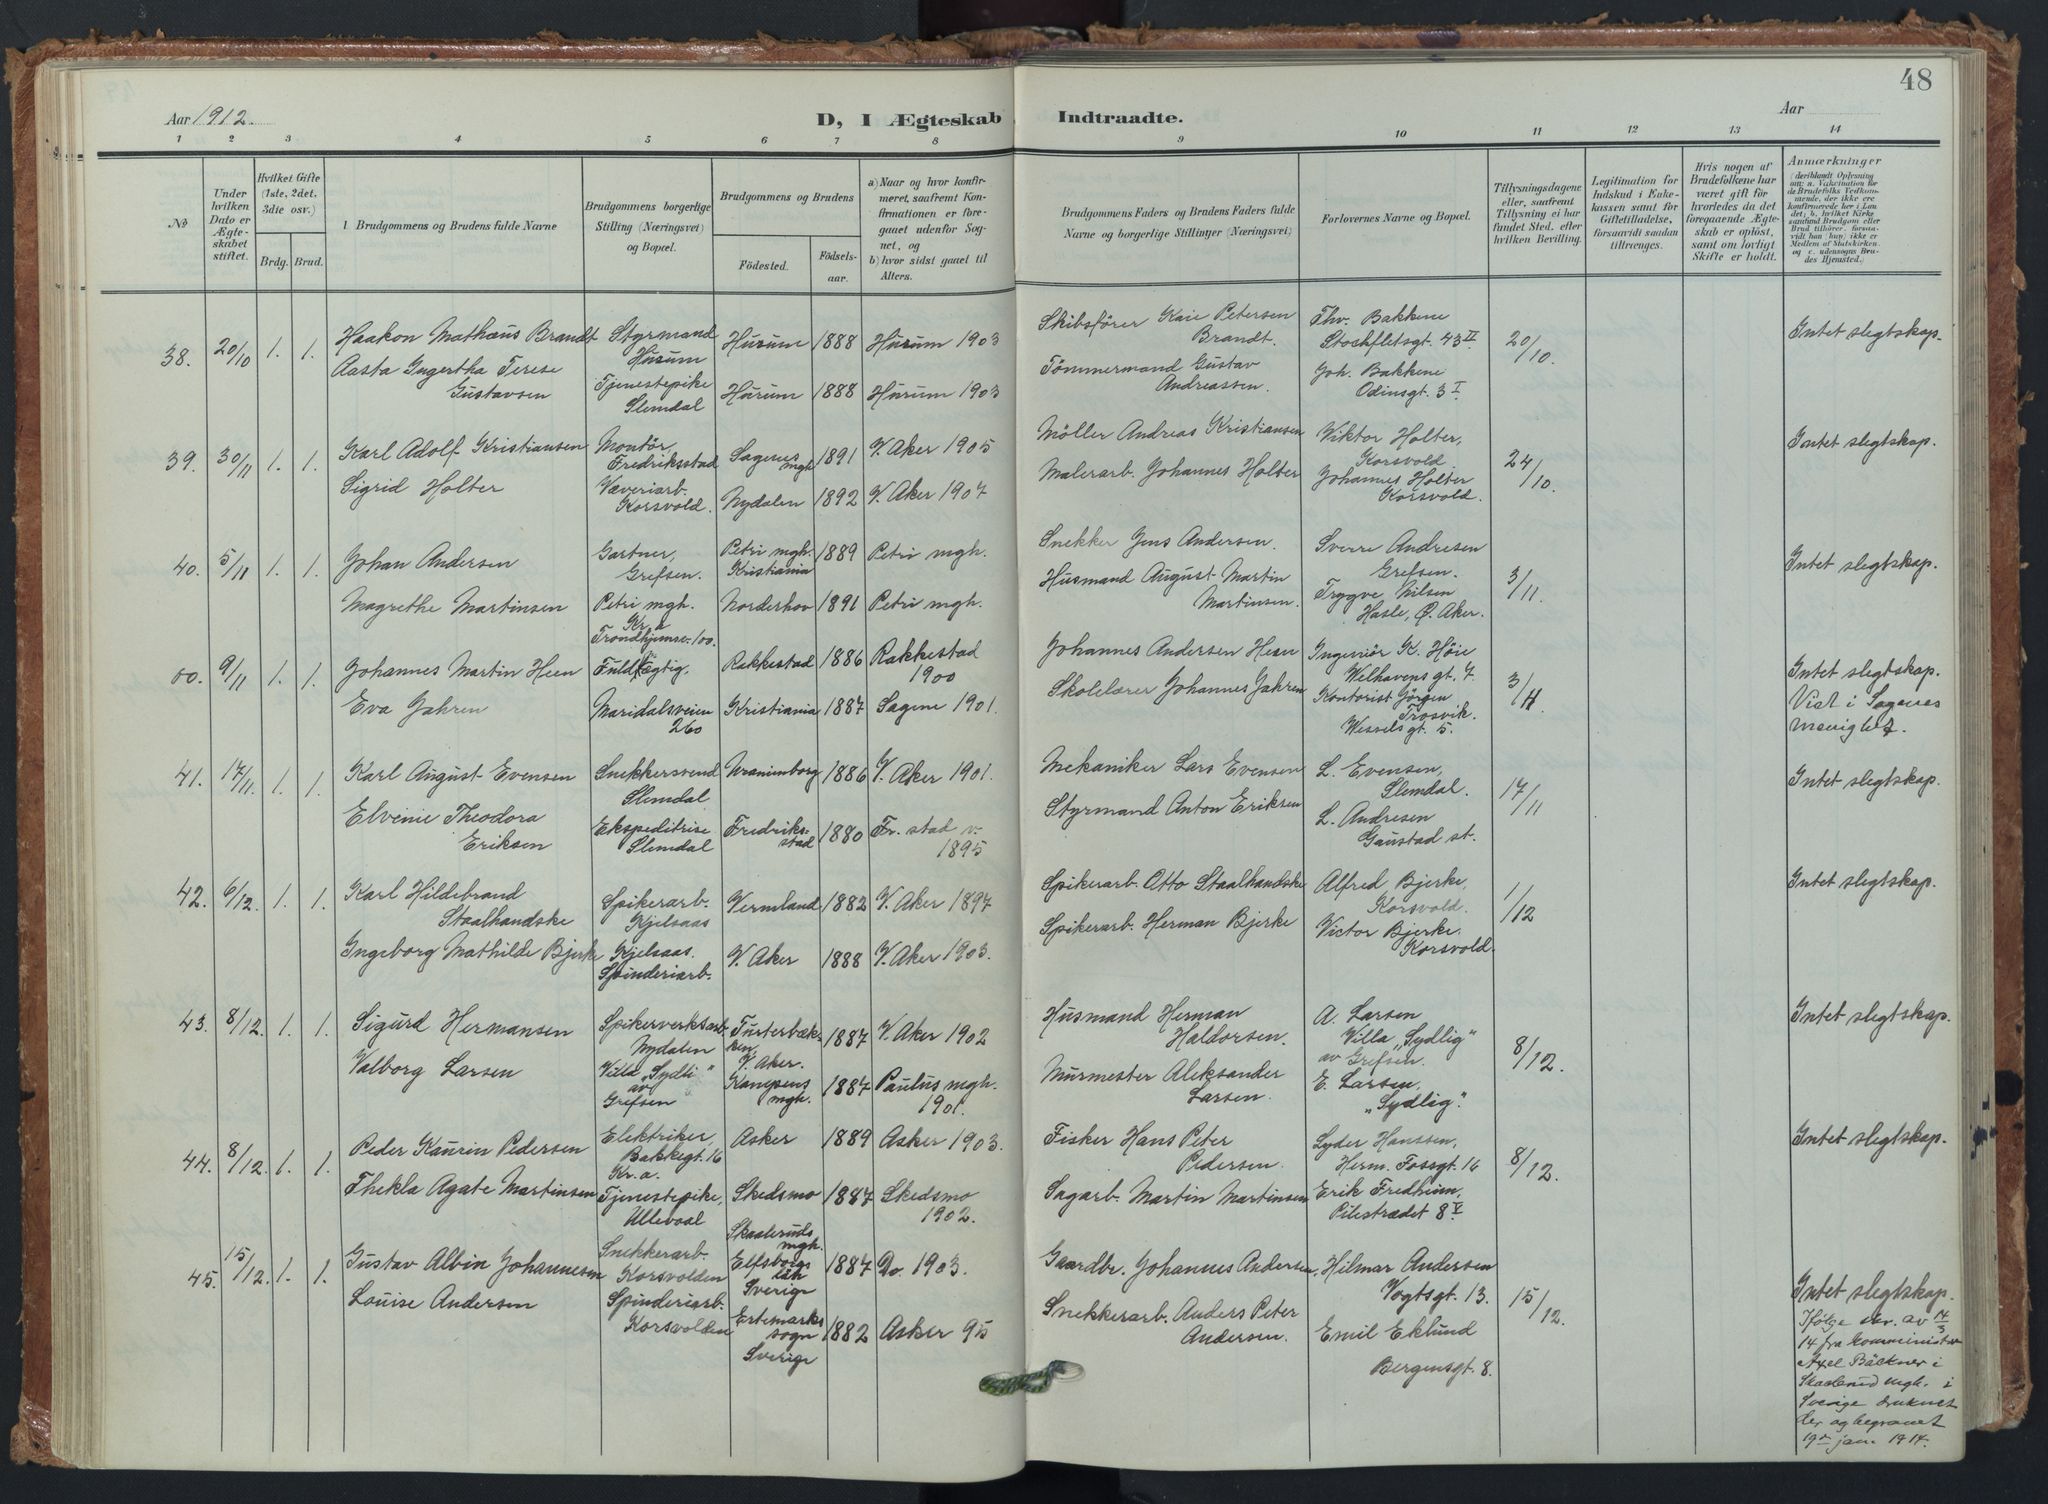 48
Aar 1912.
D, I Ægteskab Indtraadte.
Aar
1 2 3 4 5 6 7 8 9 10 11 12 13 14
No
Under hvilken Dato er Ægteskabet stiftet.
Hvilket Gifte (1ste, 2det, 3die osv.)
Brdg. Brud.
Brudgommens og Brudens fulde Navne
Brudgommens borgerlige Stilling (Næringsvei) og Bopæl.
Brudgommens og Brudens
Födested.
Födselsaar.
a) Naar og hvor konfirmeret, saafremt Konfirmationen er foregaaet udenfor Sognet, og
b) hvor sidst gaaet til Alters.
Brudgommens Faders og Brudens Faders fulde Navne og borgerlige Stillinger (Næringsvei)
Forlovernes Navne og Bopæl.
Tillysningsdagene eller, saafremt Tillysning ei har fundet Sted, efter hvilken Bevilling.
Legitimation for Indskud i Enkekassen samt for Giftetilladelse, forsaavidt saadan tiltrænges.
Hvis nogen af Brudefolkene har været gift før hvorledes da det foregaaende Ægteskab er oplöst, samt om lovligt Skifte er holdt.
Anmærkninger
(deriblandt Oplysning om: a. Vakcination for de Brudefolks Vedkommende, der ikke ere konfirmerede her i Landet; b. hvilket Kirkesamfund Brudgom eller Brud tilhörer, forsaavidt han (hun) ikke er Medlem af Statskirken, og c. udensogns Brudes Hjemsted.)
38. 20/10 1. 1.
Haakon Mathæus Brandt
Styrmand
Hurum
Hurum 1888 Hurum 1903
Skibsfører Kaie Petersen
Brandt.
Thv. Bakkene
Stockfletsgt. 43 II
20/10.
Intet slegtskap.
Aasta Ingertha Terese
Gustavsen
Tjenestepike
Slemdal
Hurum 1888 Hurum 1903
Tømmermand Gustav
Andreassen.
Joh. Bakkene
Odinsgt. 3 I
39. 30/11 1. 1.
Karl Adolf Kristiansen
Montör,
Fredriksstad
Sagenes mgh 1891 V. Aker 1905
Möller Andreas Kristiansen
Viktor Holter,
Korsvold
24/10.
Intet slegtskap.
Sigrid Holter
Væveriarb.
Korsvold.
Nydalen 1892 V. Aker 1907
Malerarb. Johannes Holter
Johannes Holter
Korsvold.
40. 5/11 1. 1.
Johan Andersen
Gartner,
Grefsen.
Petri mgh.
Kristiania
1889 Petri mgh.
Snekker Jens Andersen.
Sverre Andresen
Grefsen.
3/11.
Intet slegtskap.
Magrethe Martinsen
Petri mgh.
Kr.a
Norderhov 1891 Petri mgh.
Husmand August Martin
Martinsen.
Trygve Nilsen
Hasle, Ø. Aker.
00. 9/11 1. 1.
Trondhjemsv. 100.
Johannes Martin Heen
Fuldmægtig
Rakkestad 1886 Rakkestad
1900
Johannes Andersen Heen
Ingeniör K. Höie
Welhavensgt. 7.
3/11.
Intet slegtskap.
Viet i Sagenes
menighet.
Eva Jahren
Maridalsveien
260
Kristiania 1887 Sagene 1901.
Skolelærer Johannes Jahren
Kontorist Jörgen
Trosvik.
Wesselsgt. 5.
41. 17/11. 1. 1.
Karl August Evensen
Snekkersvend
Slemdal
Uranienborg 1886 V. Aker 1901.
Mekaniker Lars Evensen
L. Evensen,
Slemdal.
17/11
Intet slegtskap.
Elvenie Theodora
Eriksen
Ekspeditrise
Slemdal
Fredriksstad 1880 Fr. stad v.
1895
Styrmand Anton Eriksen
L. Andresen
Gaustad st.
42. 6/12. 1. 1.
Karl Hildebrand
Staalhandske
Spikerarb.
Kjelsaas
Vermland 1882 V. Aker 1897
Spikerarb. Otto Staalhandske
Alfred Bjerke,
Korsvold.
1/12
Intet slegtskap.
Ingeborg Mathilde Bjerke
Kjelsaas.
Spinderiarb.
V. Aker 1888 V. Aker 1903.
Spikerarb. Herman Bjerke
Victor Bjerke,
Korsvold.
43. 8/12. 1. 1.
Sigurd Hermansen
Spikerverksarb.
Nydalen
Turterbækken,
V. Aker.
1887 V. Aker 1902
Husmand Herman
Haldorsen.
A. Larsen
Villa „Sydlig"
av Grefsen.
8/12.
Intet slegtskap.
Valborg Larsen
Villa „Sydli"
av
Grefsen
Kampens
mgh.
1887 Paulus mgh.
1901.
Murmester Aleksander
Larsen.
E. Larsen,
„Sydlig".
44. 8/12. 1. 1.
Peder Kaurin Pedersen
Elektriker,
Bakkegt. 16
Kr.a.
Asker 1889 Asker 1903.
Fisker Hans Peter
Pedersen.
Lyder Hanssen,
Herm. Fossgt. 16
8/12.
Intet slegtskap.
Thekla Agate Martinsen
Tjenestepike,
Ullevaal
Skedsmo 1887 Skedsmo
1902.
Sagarb. Martin Martinsen
Erik Fredheim,
Pilestrædet 8 V
45. 15/12. 1. 1.
Gustav Albin Johannesen
Snekkerarb.
Korsvolden
Skaaleruds
mgh.
Elfsborgs
län
Sverige
1887 Do. 1903.
Gaardbr. Johannes Andersen,
Hilmar Andersen
Vogtsgt. 13.
15/12.
Intet slegtskap.
Louise Andersen
Spinderiarb.
Korsvolden
Ertemarks
sogn
Sverige
1882 Asker 95
Snekkerarb. Anders Peter
Andersen.
Emil Eklund
Bergensgt. 8.
Ifölge skr. av 14/3
14 fra kommminister
Axel Bäckner i
mgh. i
Sverige druknet
der og begravet
jan. 1914.